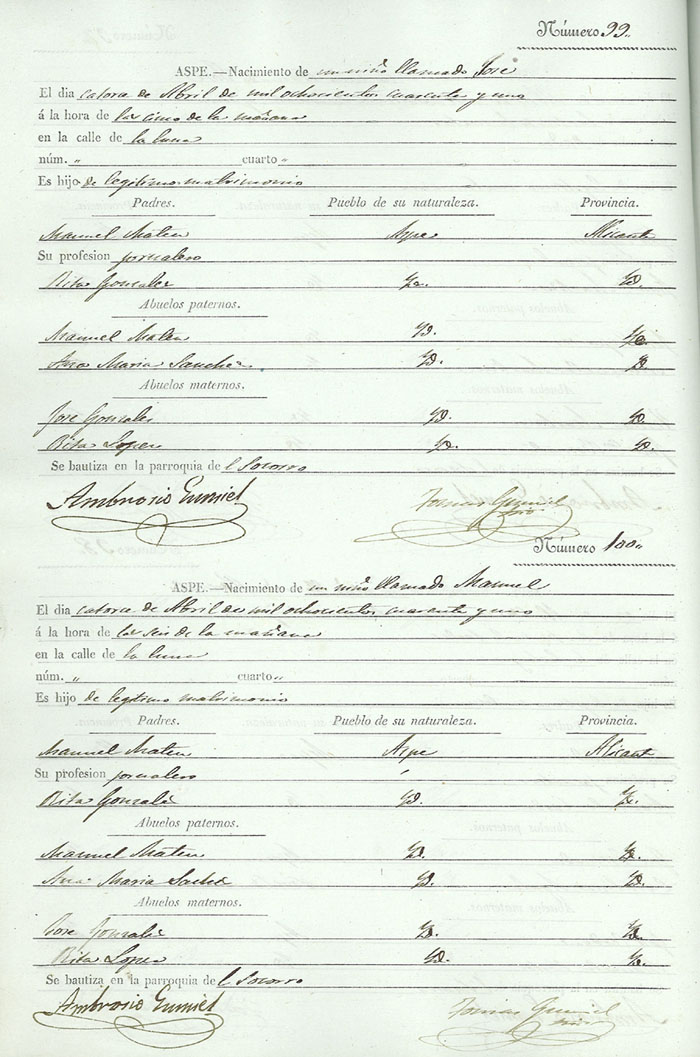 Número 99.
ASPE.—Nacimiento de un niño llamado Jose
El dia catorce de Abril de mil ochocientos cuarenta y uno
á la hora de las cinco de la mañana
en la calle de la luna
núm. " cuarto "
Es hijo de legitimo matrimonio
Padres. Pueblo de su naturaleza. Provincia.
Manuel Mateu Aspe Alicante
Su profesion jornalero
Rita Gonzalez Yd. Yd.
Abuelos paternos.
Manuel Mateu Yd. Yd.
Ana Maria Sanchez Yd. Yd.
Abuelos maternos.
Jose Gonzales Yd. Yd.
Rita Lopez Yd. Yd.
Se bautiza en la parroquia de l Socorro
Ambrosio Gumiel Tomas Gumiel
Número 100.
ASPE.—Nacimiento de un niño llamado Manuel
El dia catorce de Abril de mil ochocientos cuarenta y uno
á la hora de las seis de la mañana
en la calle de la luna
núm. " cuarto "
Es hijo de legitimo matrimonio
Padres. Pueblo de su naturaleza. Provincia.
Manuel Mateu Aspe Alicante
Su profesion jornalero
Rita Gonzalez Yd. Yd.
Abuelos paternos.
Manuel Mateu Yd. Yd.
Ana Maria Sachez Yd. Yd.
Abuelos maternos.
Jose Gonzalez Yd. Yd.
Rita Lopez Yd. Yd.
Se bautiza en la parroquia de l Socorro
Ambrosio Gumiel Tomas Gumiel